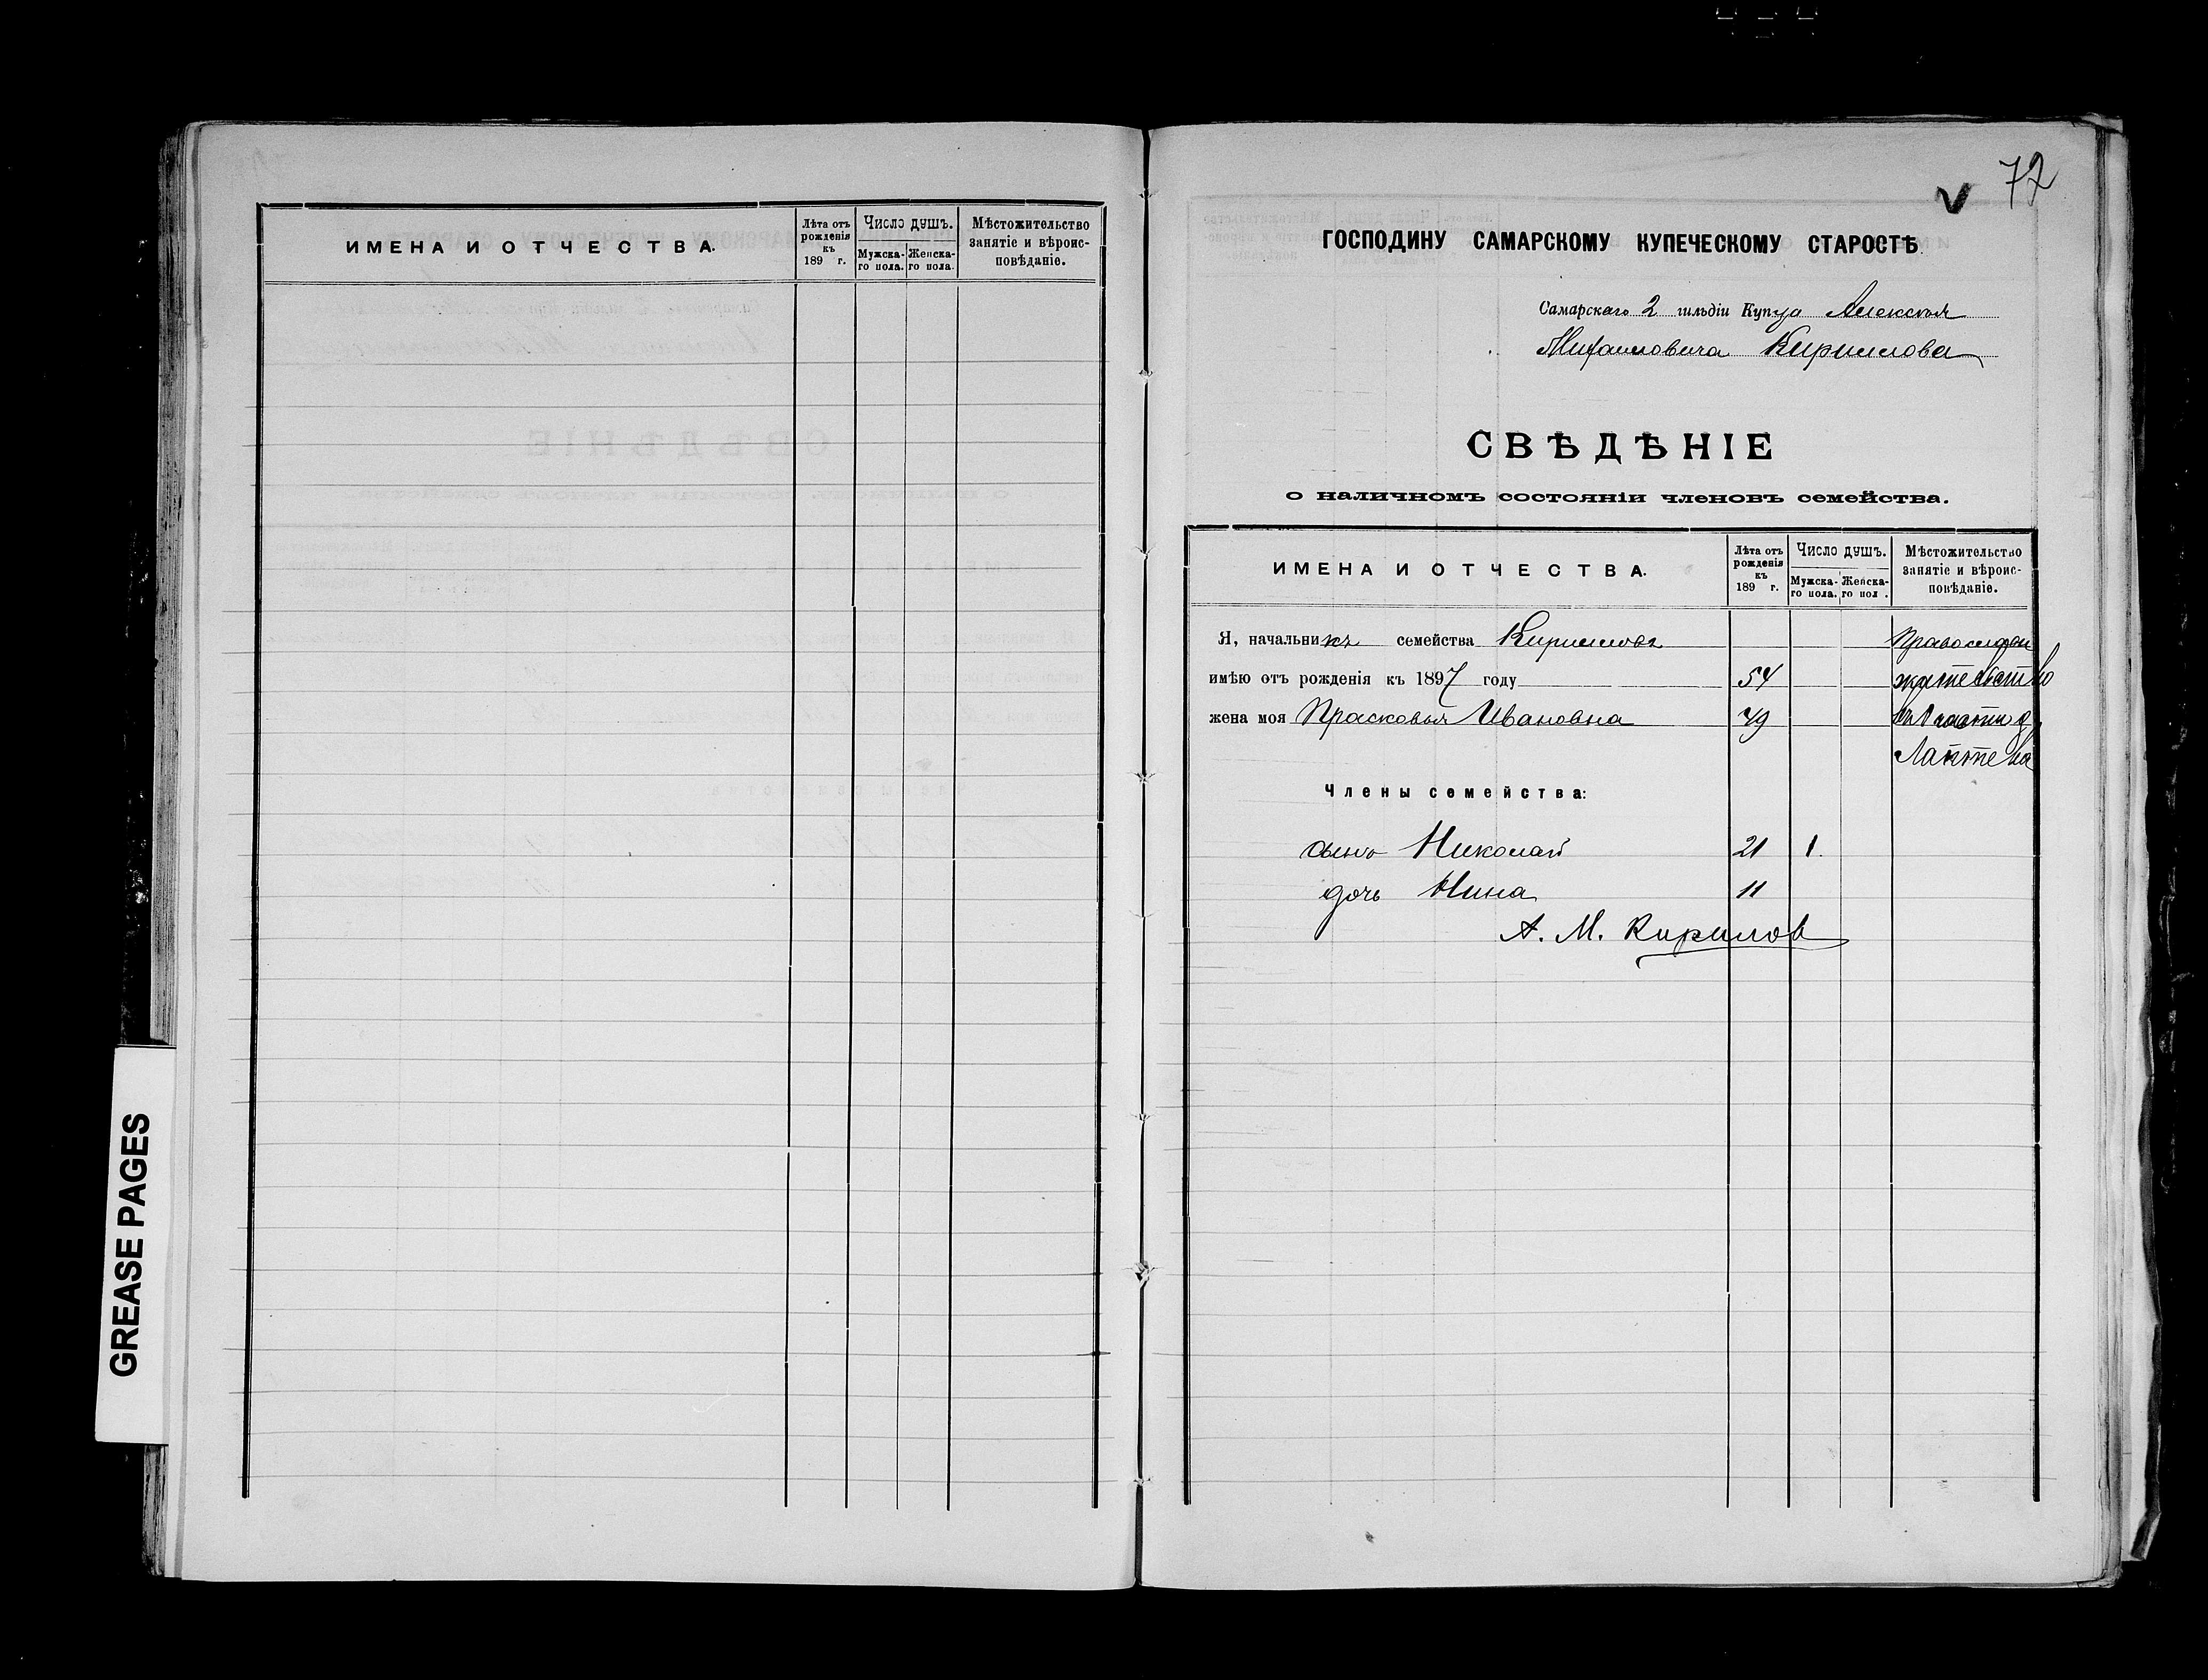 ИМЕНА И ОТЧЕСТВА.
Лѣта отъ рожденія къ 189 г.
Число душъ.
Мужска-го пола.
Женска-го пола.
Мѣстожительство занятіе и вѣроис-повѣданіе.
72
ГОСПОДИНУ САМАРСКОМУ КУПЕЧЕСКОМУ СТАРОСТѢ.
Самарскаго 2 гильдіи Купца Алексѣя
Михаиловича Кирилова
СВѢДѢНІЕ
о наличномъ состояніи членовъ семейства.
ИМЕНА И ОТЧЕСТВА.
Лѣта отъ рожденія къ 189 г.
Число душъ.
Мужска-го пола.
Женска-го пол .
Мѣстожительство занятіе и вѣроис-повѣданіе.
Я, начальникъ семейства Кириловъ
имѣю отъ рожденія къ 1897 году 54
жена моя Прасковья Ивановна 49
Лаптева
Члены семейства:
сынъ Николай 21 1.
дочь Нина 11
А. М. Кирилов
GREASE PAGES